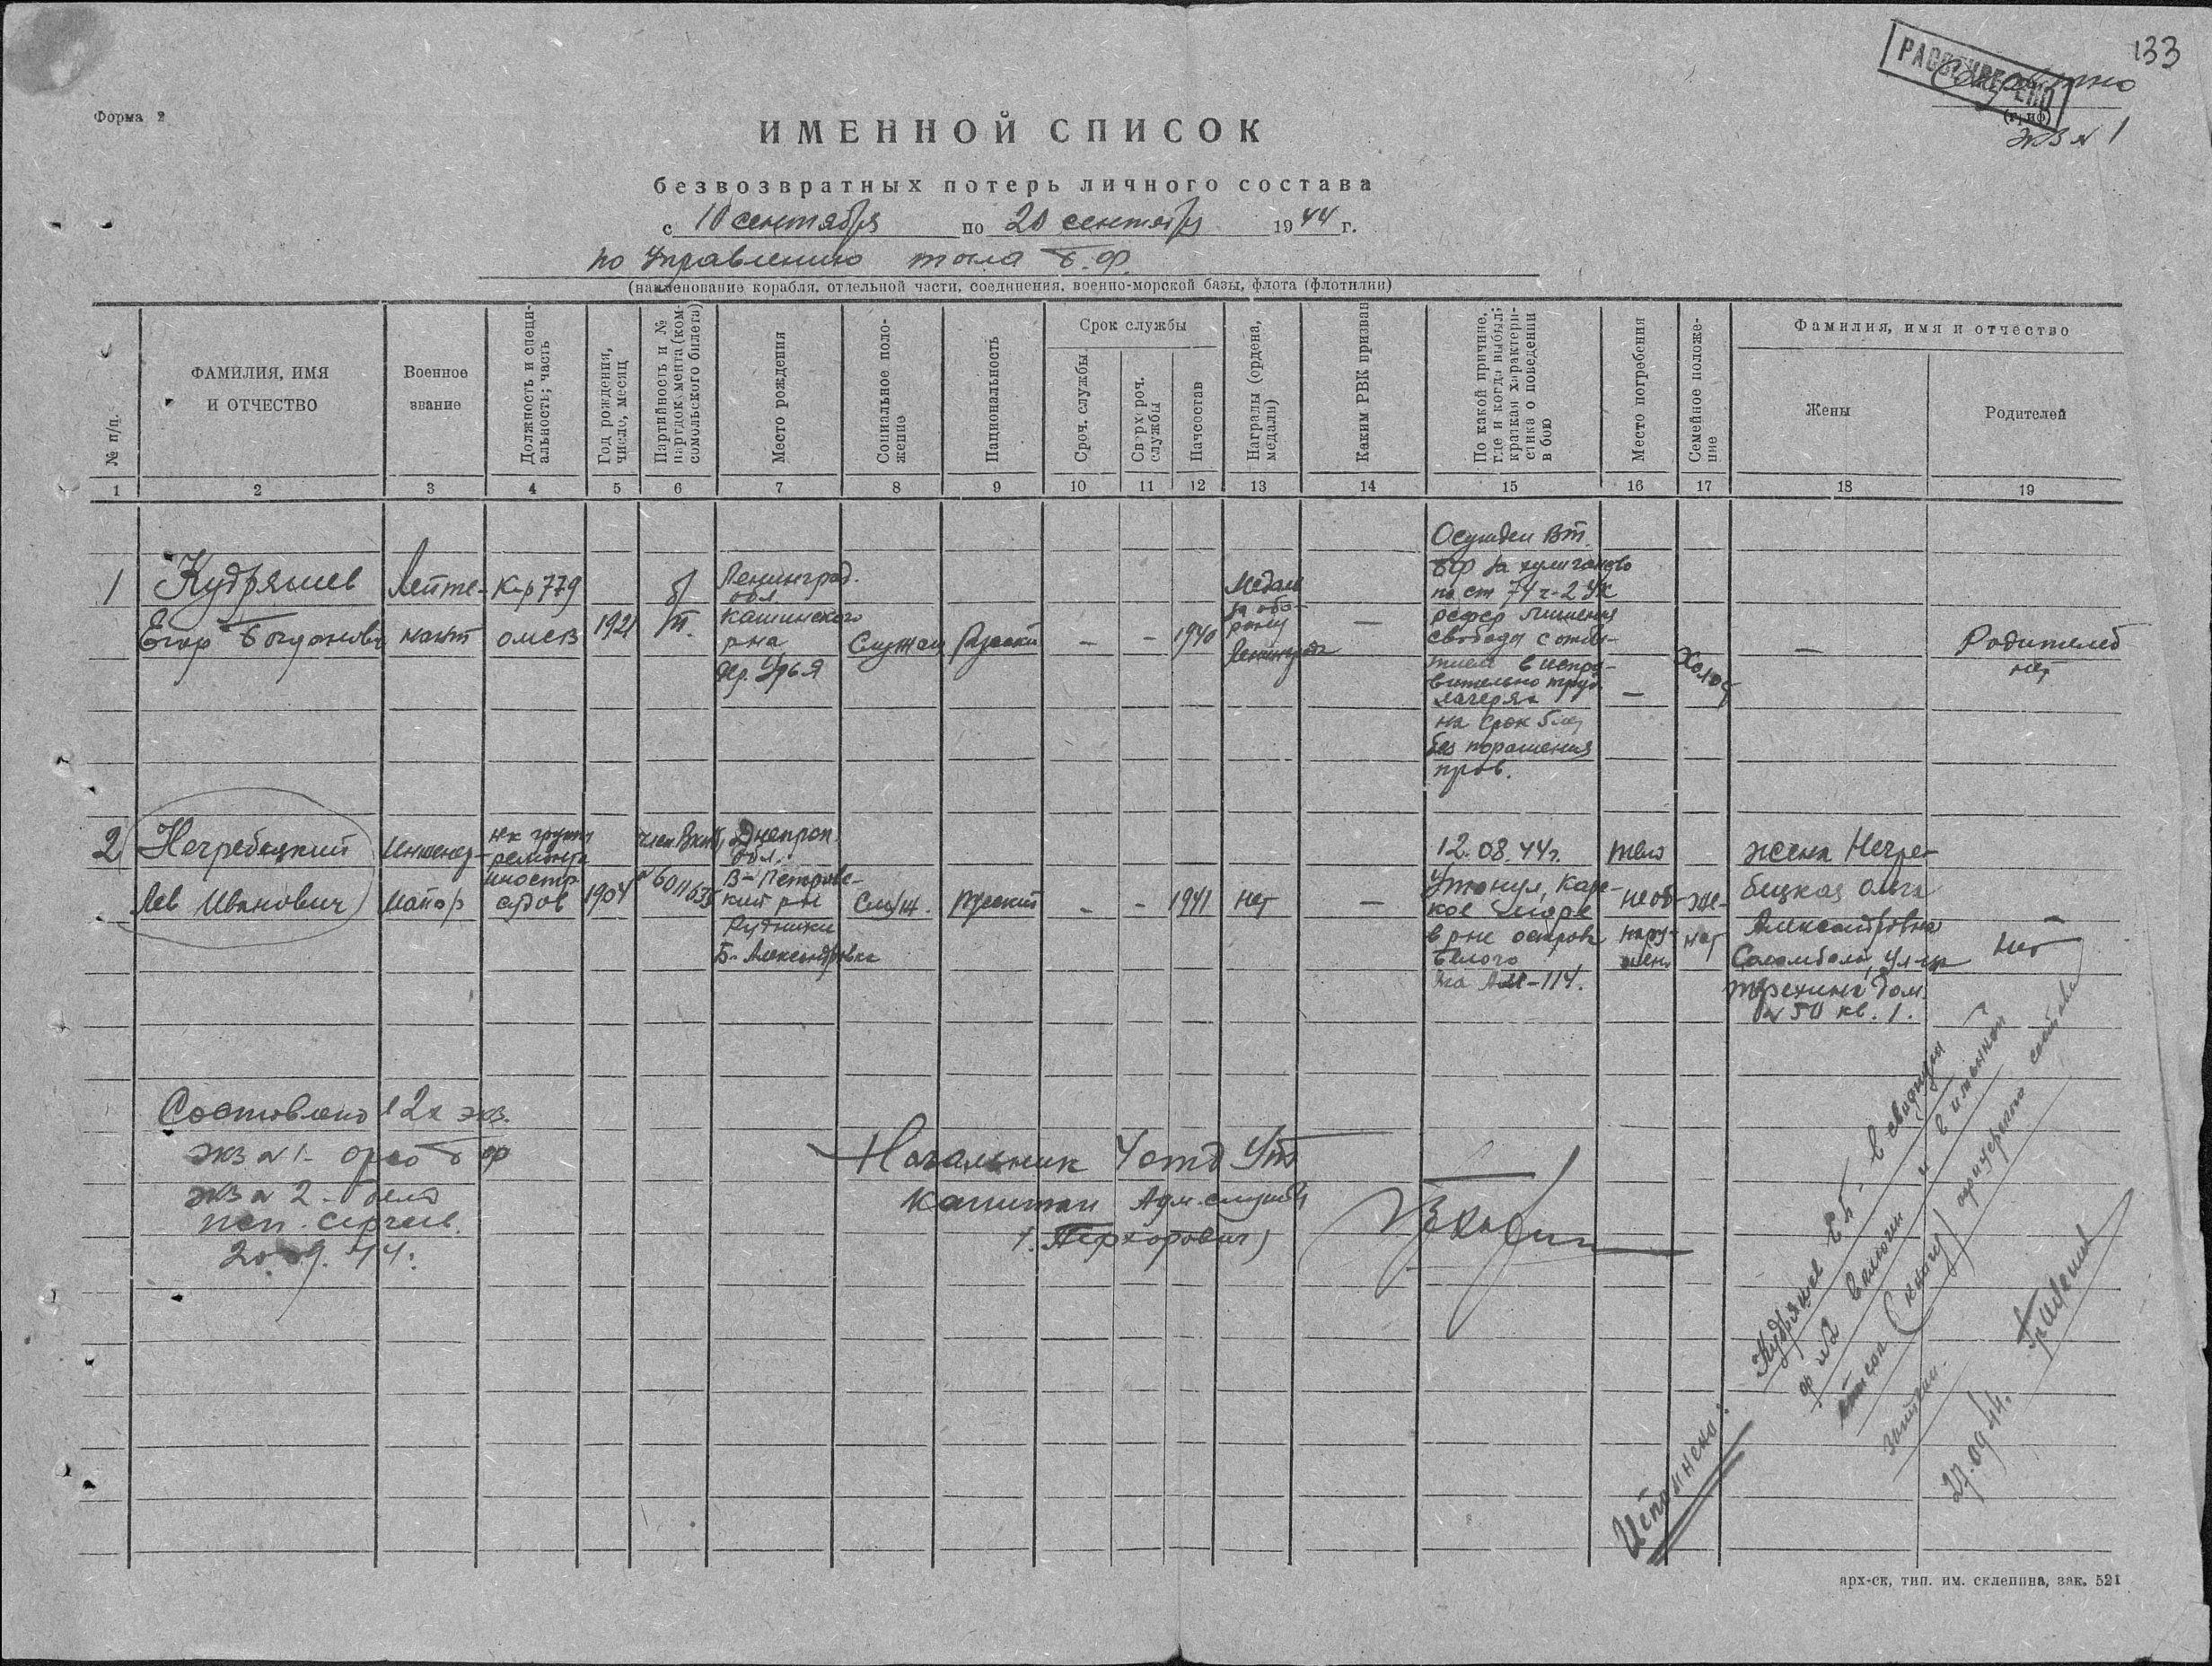 133
РАССЕКРЕЧЕНО
Секретно
(гриф)
экз № 1
Форма 2
ИМЕННОЙ СПИСОК
безвозвратных потерь личного состава
с 10 сентября по 20 сентября 1944 г.
по Управлению тыла Б.Ф.
(наименование корабля, отдельной части, соединения, военно-морской базы, флота (флотилии)
№ п/п.
ФАМИЛИЯ, ИМЯ
И ОТЧЕСТВО
Военное
звание
Должность и специ-
альность; часть
Год рождения,
число, месяц
Партийность и №
партдокумента (ком-
сомольского билета)
Место рождения
Социальное поло-
жение
Национальность
Срок службы
Сроч. службы
Сверхсроч.
службы
Начсостав
Награды (ордена,
медали)
Каким РВК призван
По какой причине,
где и когда выбыл;
краткая характери-
стика о поведении
в бою
Место погребения
Семейное положе-
ние
Фамилия, имя и отчество
Жены
Родителей
1 2 3 4 5 6 7 8 9 10 11 12 13 14 15 16 17 18 19
1
Кудряшев
Егор Богданович
Лейте-
нант
К-р 779
1921
б/
п.
Ленинград.
обл
Кашинского
р-на
дер. Урья
Служащ
Русский
—
—
1940
Медаль
за обо-
рону
Ленинграда
—
Осужден ВТ
БФ за хулиганство
по ст 74 ч-2 УК
РСФСР лишения
свободы с отбы-
тием в испра-
вительно труд.
лагерях
на срок 5 лет
без поражения
прав.
—
Холост
—
Родителей
нет
2
Негребецкий
Лев Иванович
Инженер-
майор
нк группы
ремонта
иностр
судов
1904
член ВКП(б)
№ 6011635
Днепроп
обл.
В-Петровс-
кий р-н
Рудники
Б-Александровка
Служ.
Русский
—
—
1941
Нет
—
12.08.44г.
Утонул, Карс-
кое море
в р-не острова
Белого
на АМ-114.
тело
необ-
нару-
жен
же-
нат
жена Негре-
бицкая Ольга
Александровна
Соломбала, ул-ца
Терехина дом
№ 50 кв. 1.
—
Нет
Составлено в 2х экз.
экз № 1 - орсо БФ
экз № 2 - дело
исп. Сергеев.
20.09.44.
Начальник 4 отд УТ
капитан Адм. службы
(Перхорович)
Исполнено:
Кудряшев Е.Б. - в сводную
ф №2 включен и в именной
список (книгу) офицерского состава
записан.
27.09.44.
арх-ск, тип. им. склепина, зак. 521